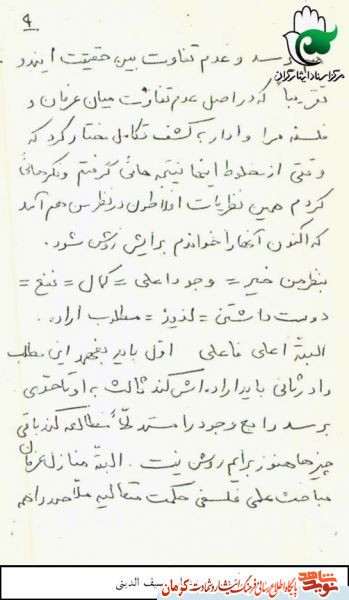 ۹
مرکز اسناد ایثارگران
رسد و عدم تفاوت بین حقیقت ایندو
تقریبا که در اصل عدم تفاوت میان عرفان و
فلسفه مرا وادار به کشف تکامل مختار کرد که
وقتی از مخلوط اینها نتیجه هائی گرفتم و فکرهائی
کردم همین نظریات افلاطون در نظرش هم آمد
که اکنون آنها را خواندم برایش روشن شود.
بنظر من خیر = وجود اعلی = کمال = نفع =
دوست داشتن = لذیذ = مطلوب اراده.
البته اعلی فاعلی اول باید بفهمد این مطلب
را در ثانی باید اراده اش کند ثالث به او تا حدی
برسد رابع وجود را مطالعه کند باقی
چیزها هنوز برایم روشن نیست. البته منازل عرفان
مباحث علمی فلسفی حکمت متعالیه ملاصدرا هم
سیف الدینی
نوید شاهد
پایگاه اطلاع رسانی فرهنگ ایثار و شهادت کرمان